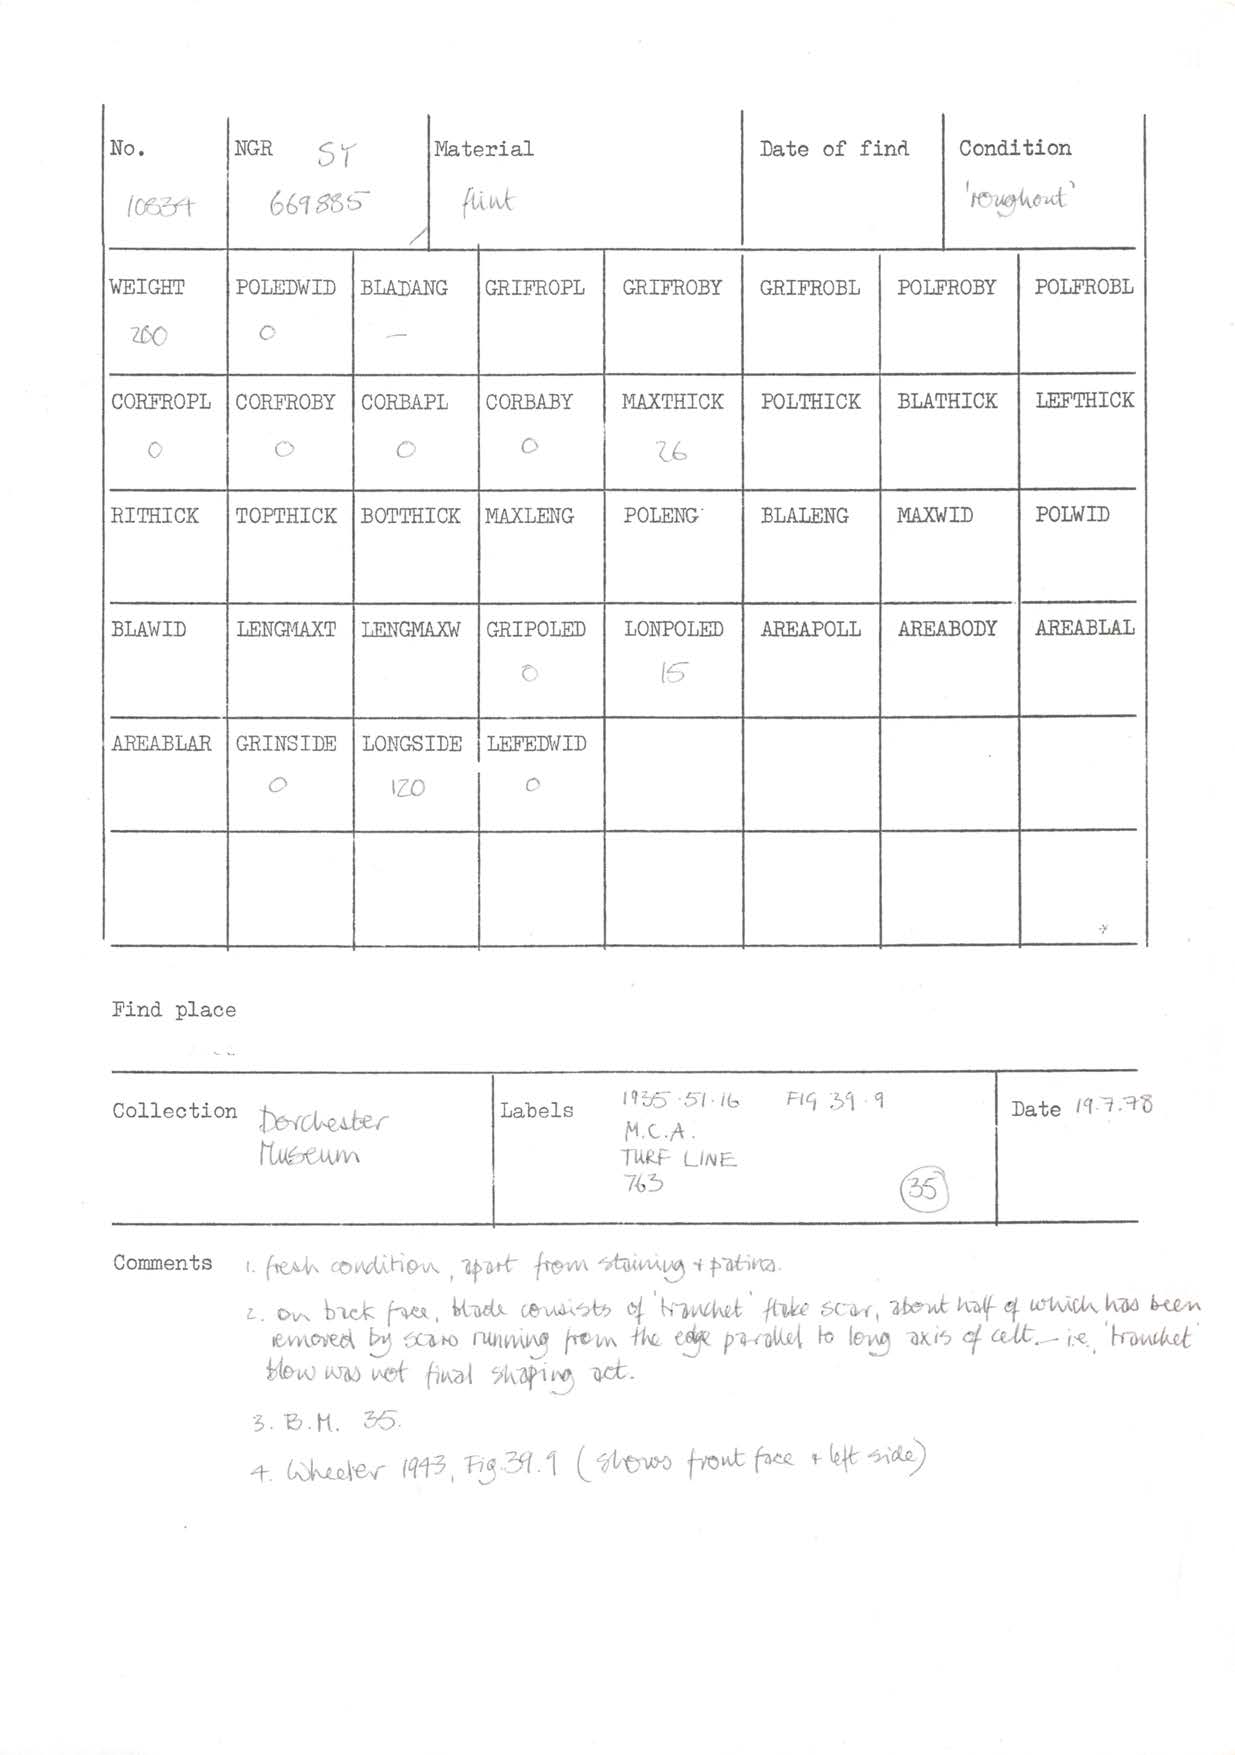 No. NGR SY Material Date of find Condition
10834 669885 flint 'roughout'
WEIGHT POLEDWID BLADANG GRIFROPL GRIFROBY GRIFROBL POLFROBY POLFROBL
200 0 —
CORFROPL CORFROBY CORBAPL CORBABY MAXTHICK POLTHICK BLATHICK LEFTHICK
0 0 0 0 26
RITHICK TOPTHICK BOTTHICK MAXLENG POLENG BLALENG MAXWID POLWID
BLAWID LENGMAXT LENGMAXW GRIPOLED LONPOLED AREAPOLL AREABODY AREABLAL
0 15
AREABLAR GRINSIDE LONGSIDE LEFEDWID
0 120 0
Find place
Collection Dorchester Museum
Labels 1935.51.16 FIG 39.9
M.C.A.
TURF LINE
763 35
Date 19.7.78
Comments 1. fresh condition, apart from staining + patina.
2. on back face, blade consists of 'tranchet' flake scar, about half of which has been
removed by scars running from the edge parallel to long axis of celt. — i.e. 'tranchet'
blow was not final shaping act.
3. B.M. 35.
4. Wheeler 1943, Fig. 39.9 (shows front face + left side)